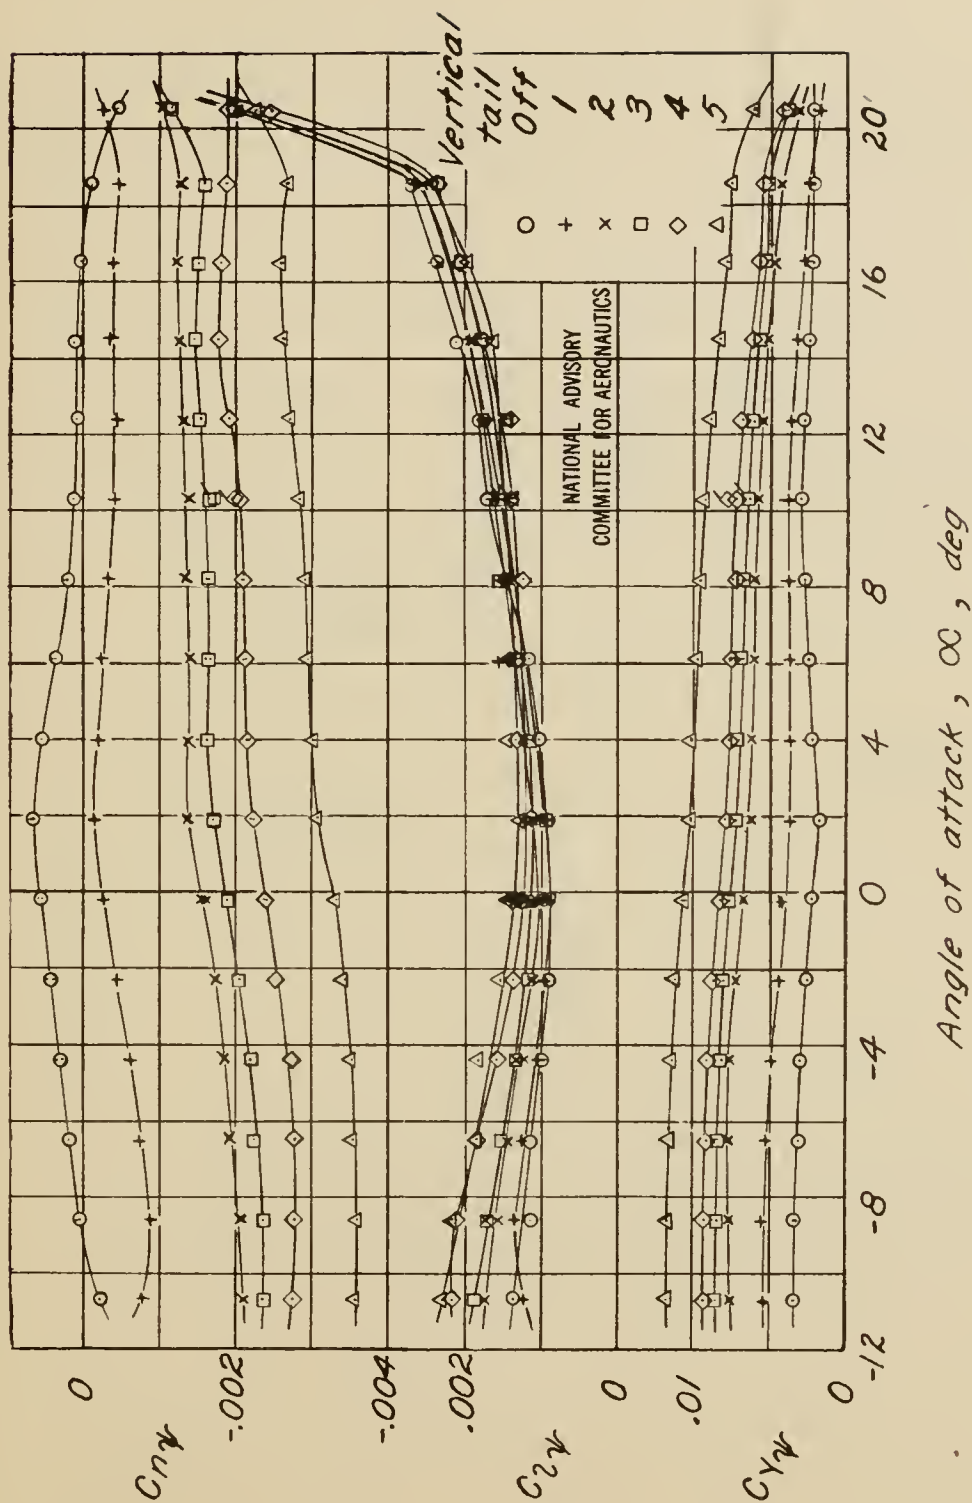 Cnψ
0
-.002
-.004
Clψ
.002
0
CYψ
.01
0
-12
-8
-4
0
4
8
12
16
20
Angle of attack, α, deg
Vertical
tail
Off
1
2
3
4
5
NATIONAL ADVISORY
COMMITTEE FOR AERONAUTICS